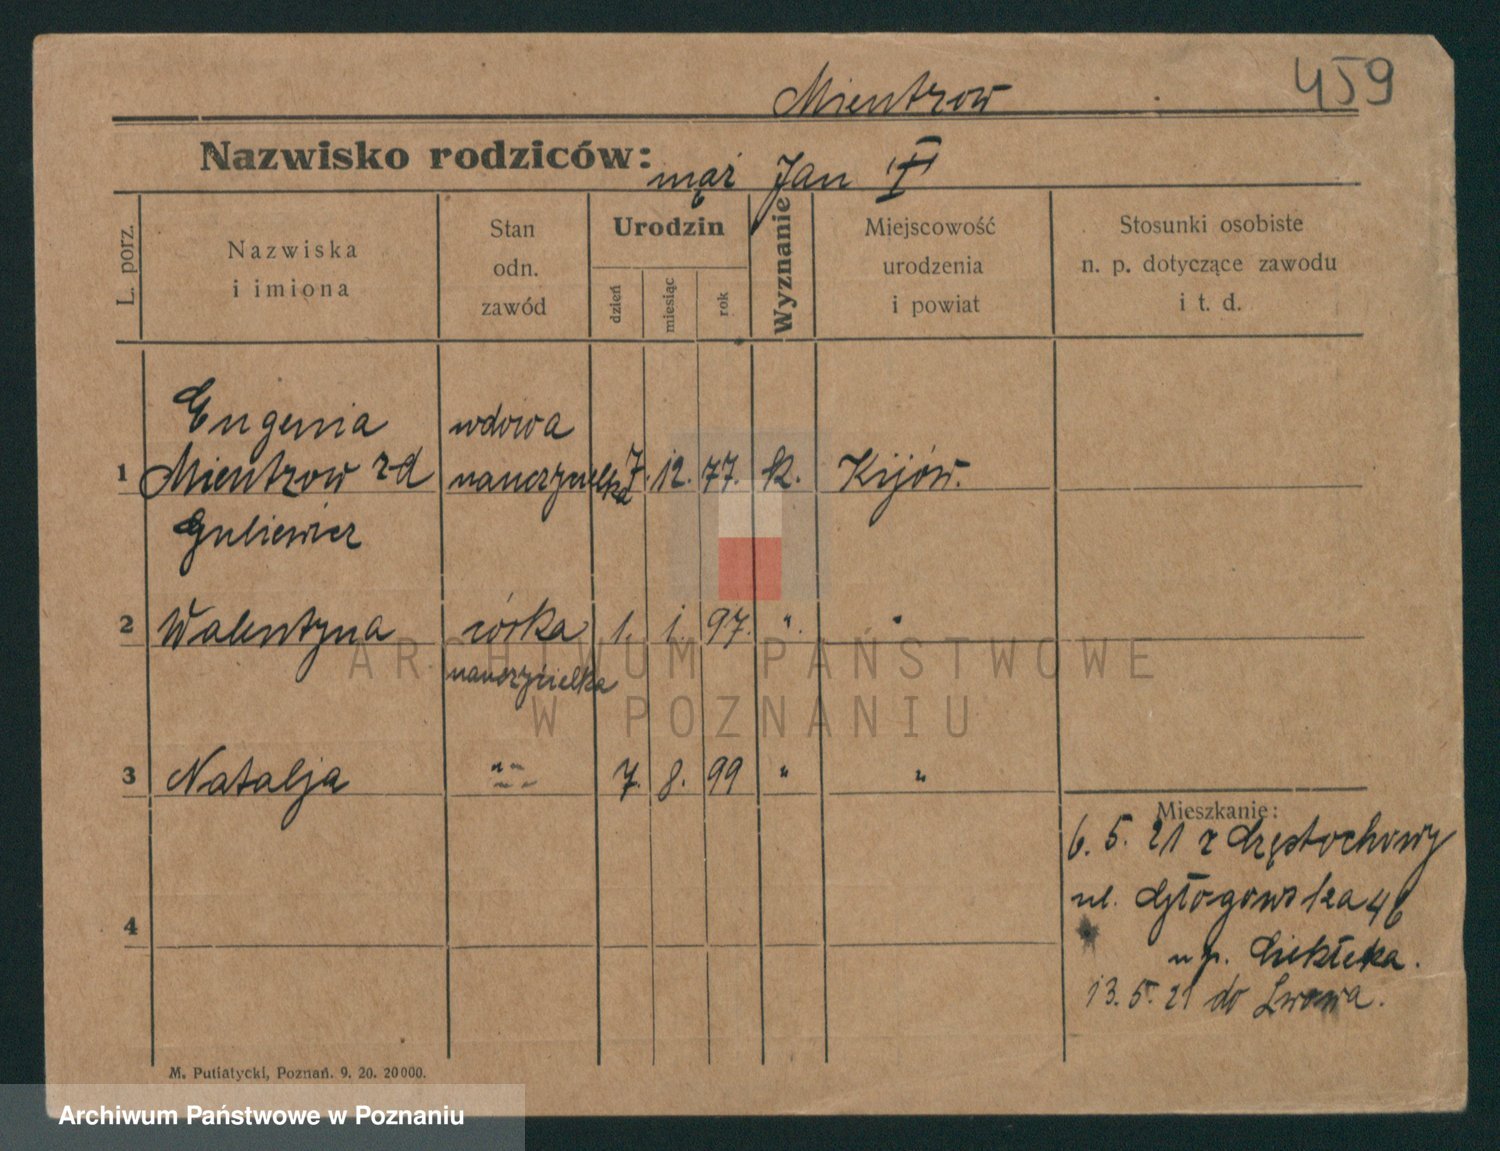 459
Mientzow
Nazwisko rodziców: mąż Jan
L. porz.
Nazwiska
i imiona
Stan
odn.
zawód
Urodzin
dzień
miesiąc
rok
Wyznanie
Miejscowość
urodzenia
i powiat
Stosunki osobiste
n. p. dotyczące zawodu
i t. d.
Eugenia wdowa
1 Mientzow z-d nauczycielka 7. 12. 77. k. Kijów.
Guliewicz
2 Walentyna córka 1. 1. 97. " "
nauczycielka
3 Natalja " " 7. 8. 99 " "
Mieszkanie:
6. 5. 21 z Częstochowy
ul. Głogowska 46
4
u p.
13. 5. 21 do Lwowa.
M. Putiatycki, Poznań. 9. 20. 20000.
ARCHIWUM PAŃSTWOWE
W POZNANIU
Archiwum Państwowe w Poznaniu